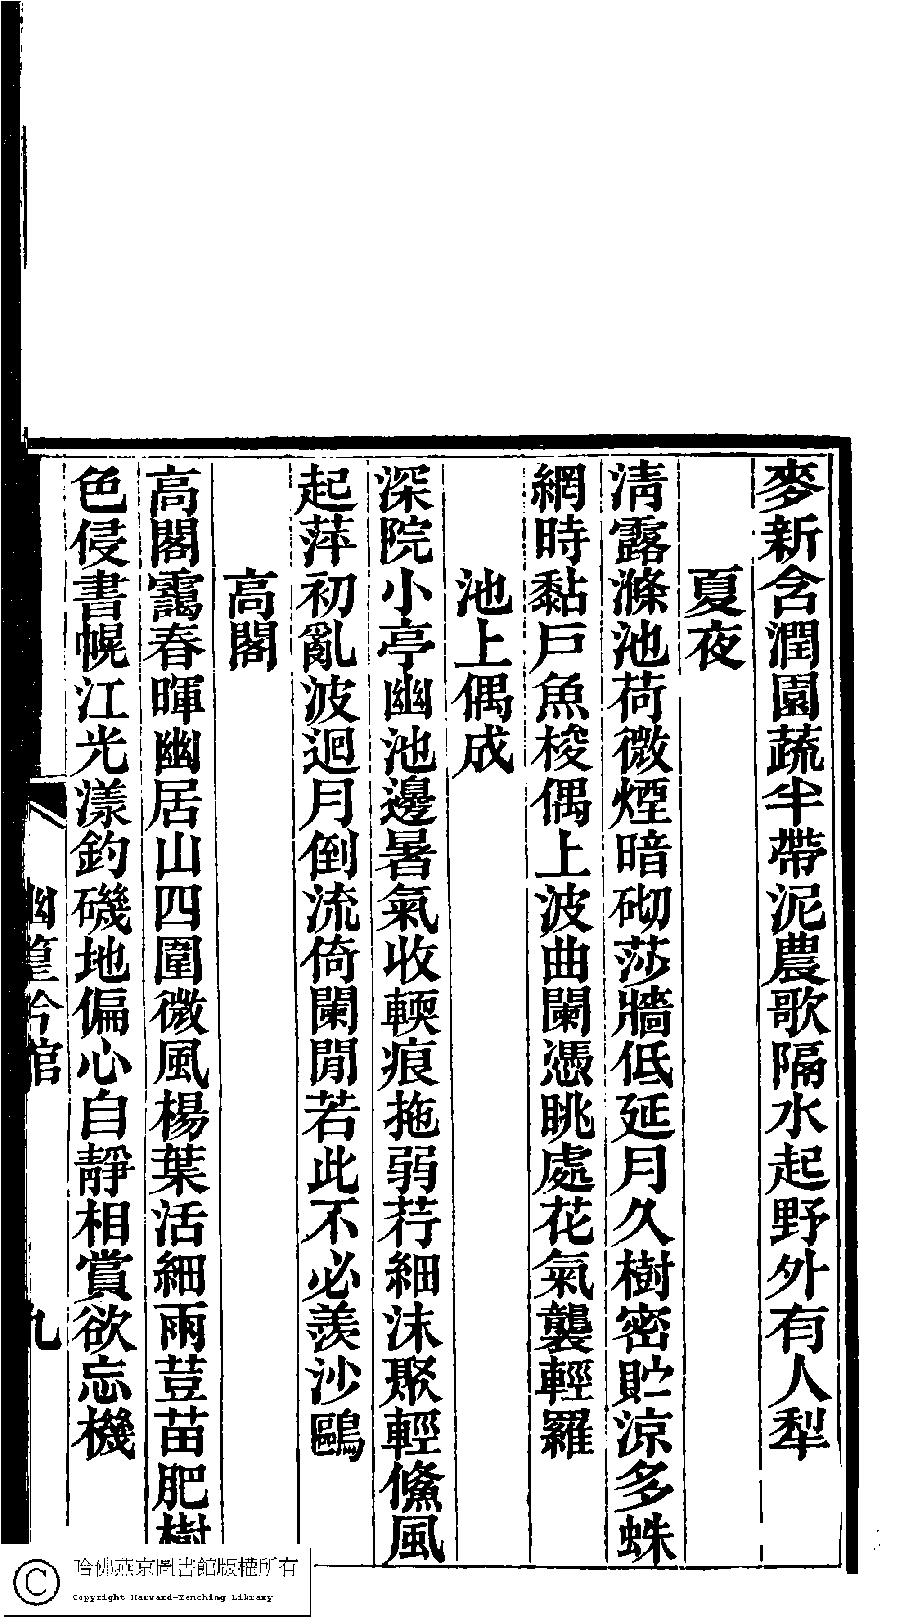 麥新含潤園蔬半帶泥農歌隔水起野外有人犁
夏夜
清露滌池荷微煙暗砌莎牆低延月久樹密貯涼多蛛
網時黏戶魚梭偶上波曲闌憑眺處花氣襲輕羅
池上偶成
深院小亭幽池邊暑氣收輭痕拖弱荇細沫聚輕鯈風
起萍初亂波迴月倒流倚闌閒若此不必羨沙鷗
高閣
高閣靄春暉幽居山四圍微風楊葉活細雨荳苗肥樹
色侵書幌江光漾釣磯地偏心自靜相賞欲忘機
幽篁吟館
九
哈佛燕京圖書館版權所有
Copyright Harvard-Yenching Library